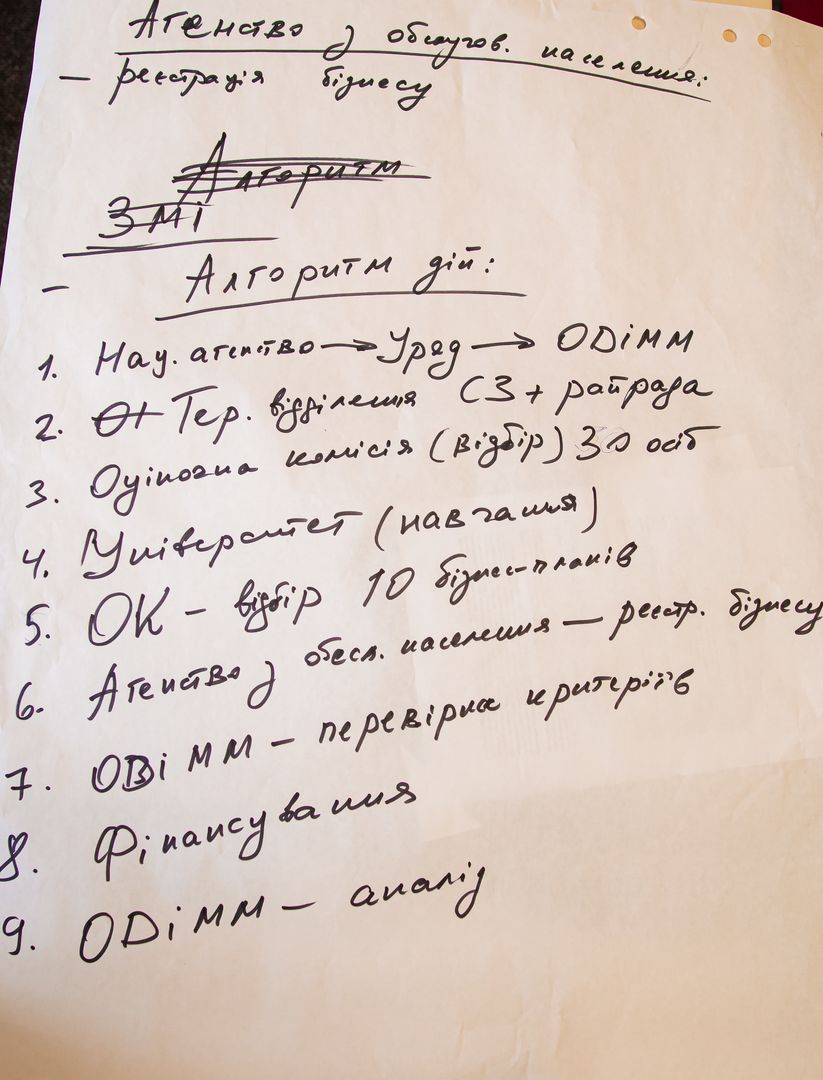 Агенство з обслугов. населення:
– реєстрація бізнесу
Алгоритм
ЗМІ
– Алгоритм дій:
1. Нац. агенство → Уряд → ОДіММ
2. Тер. відділення СЗ + райрада
3. Оціночна комісія (відбір) 30 осіб
4. Університет (навчання)
5. ОК – відбір 10 бізнес-планів
6. Агенство з обсл. населення – реєстр. бізнесу
7. ОВіММ – перевірка критеріїв
8. Фінансування
9. ОДіММ – аналіз